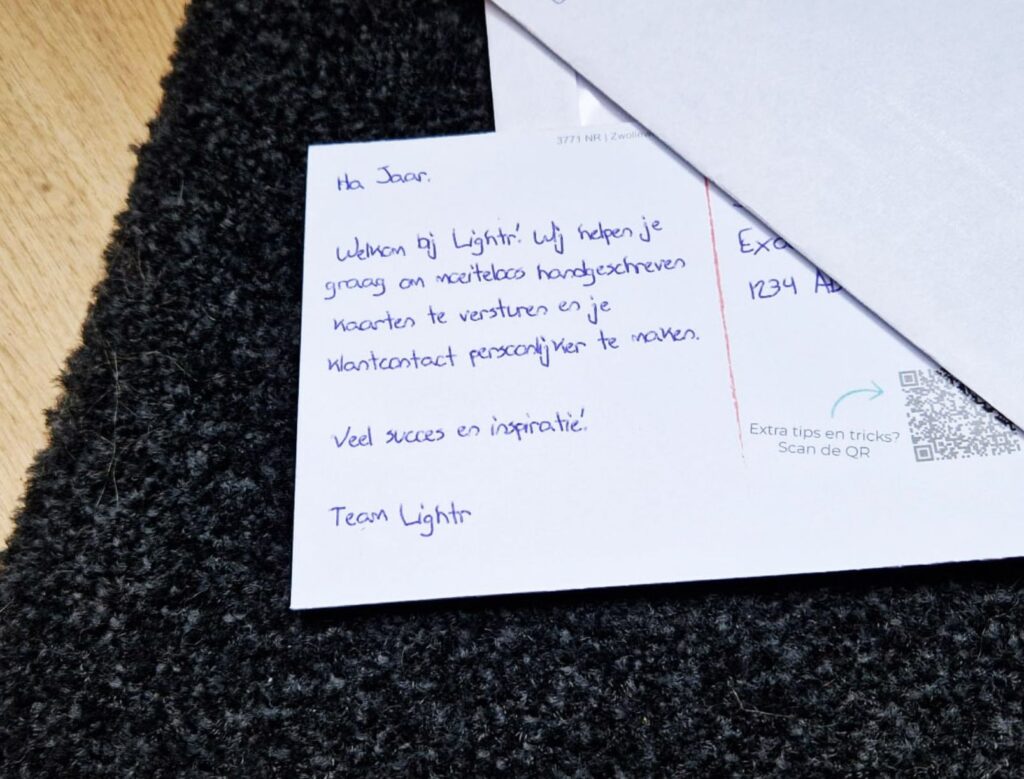 3771 NR |
Ha Jaar.
Welkom bij Lightr! Wij helpen je
graag om moeiteloos handgeschreven
kaarten te versturen en je
klantcontact persoonlijker te maken.
Veel succes en inspiratie!
Team Lightr
1234
Extra tips en tricks?
Scan de QR